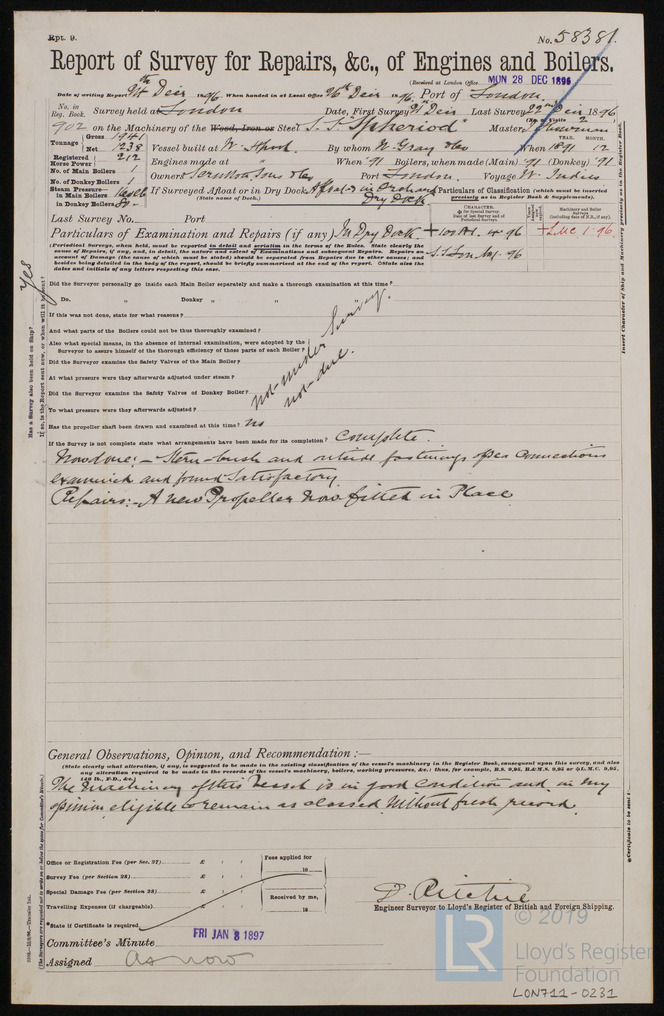 Rpt. 9.
No. 58381.
Report of Survey for Repairs, &c., of Engines and Boilers.
(Received at London Office MON 28 DEC 1896
Date of writing Report 24th Decr 1896. When handed in at Local Office 26th Decr 1896. Port of London.
No. in Reg. Book. Survey held at London Date, First Survey 21st Decr Last Survey 22nd Decr 1896
(No. of Visits 2)
902 on the Machinery of the Wood, Iron or Steel S.S. "Spheriod" Master
Tonnage Gross 1941 Net 1238 Vessel built at By whom W. Gray & Co When 1891 12
YEAR. MONTH.
Registered Horse Power 212 Engines made at " When '91 Boilers, when made (Main) '91 (Donkey) '91
No. of Main Boilers 1 Owners Scrutton Sons & Co Port London. Voyage W. Indies
No. of Donkey Boilers 1
Steam Pressure— in Main Boilers 160 lb in Donkey Boilers 80 If Surveyed Afloat or in Dry Dock Afloat & in Orchard Dry Dock
(State name of Dock.)
Particulars of Classification (which must be inserted precisely as in Register Book & Supplements).
Last Survey No. Port
CHARACTER.
Particulars of Examination and Repairs (if any) In Dry Dock
+100A1. 4.96
+LMC 1.96
S.S. Lon. 96
(Periodical Surveys, when held, must be reported in detail and seriatim in the terms of the Rules. State clearly the
cause of Repairs, if any, and, in detail, the nature and extent of Examinations and subsequent Repairs. Repairs on
account of Damage (the cause of which must be stated) should be separated from Repairs due to other causes; and
besides being detailed in the body of the report, should be briefly summarised at the end of the report. State also the
dates and initials of any letters respecting this case.
Did the Surveyor personally go inside each Main Boiler separately and make a thorough examination at this time?
Do. " Donkey " "
If this was not done, state for what reasons?
And what parts of the Boilers could not be thus thoroughly examined?
Also what special means, in the absence of internal examination, were adopted by the
Surveyor to assure himself of the thorough efficiency of those parts of each Boiler?
Did the Surveyor examine the Safety Valves of the Main Boiler?
At what pressure were they afterwards adjusted under steam?
Did the Surveyor examine the Safety Valves of Donkey Boiler?
To what pressure were they afterwards adjusted?
not under Survey.
not due.
Has the propeller shaft been drawn and examined at this time? No
If the Survey is not complete state what arrangements have been made for its completion? Complete.
Now done:— Stern-bush and outside fastenings of sea connections
examined and found satisfactory
Repairs:— A new Propeller now fitted in Place
General Observations, Opinion, and Recommendation :—
(State clearly what alteration, if any, is suggested to be made in the existing classification of the vessel's machinery in the Register Book, consequent upon this survey, and also
any alteration required to be made in the records of the vessel's machinery, boilers, working pressures, &c.: thus, for example, B.S. 9,95, B.&M.S. 9,95 or L.M.C. 9,95,
140 lb., F.D., &c.)
The Machinery of this Vessel is in good Condition and in my
opinion eligible to remain as classed without fresh record.
Office or Registration Fee (per Sec. 27) £ : :
Survey Fee (per Section 28) £ : :
Special Damage Fee (per Section 28) £ : :
Travelling Expenses (if chargeable) £ : :
Fees applied for 18
Received by me, 18
*State if Certificate is required
D. Ritchie
Engineer Surveyor to Lloyd's Register of British and Foreign Shipping.
Committee's Minute FRI JAN 8 1897
Assigned as now
Has a Survey also been held on Ship? Yes
If so, is the Report sent now, or when will it be sent?
Insert Character of Ship and Machinery precisely as in the Register Book.
*Certificate to be sent to
LR
© 2019
Lloyd's Register
Foundation
LON711-0231